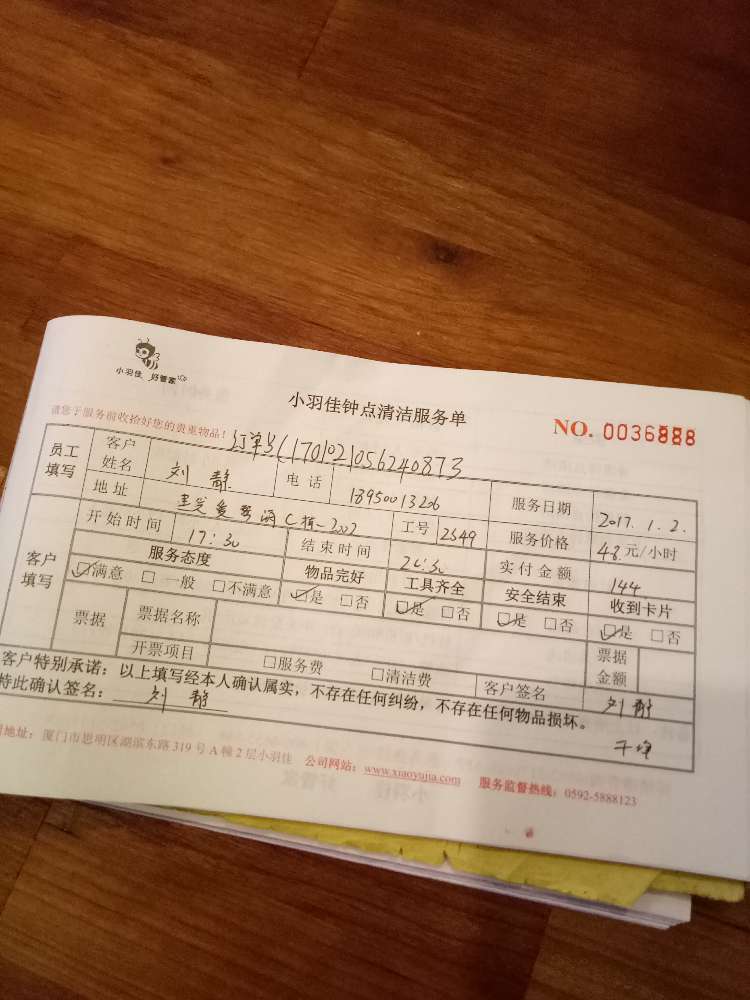 小羽佳 好管家
小羽佳钟点清洁服务单
NO. 0036888
请您于服务前收拾好您的贵重物品!
订单号(1701021056240873
员工填写 客户姓名 刘静 电话 18950013206 服务日期 2017.1.2.
地址 C栋-2002 工号 2549 服务价格 48.元/小时
客户填写 开始时间 17:30 结束时间 20:30 实付金额 144.
服务态度 物品完好 工具齐全 安全结束 收到卡片
☑满意 □一般 □不满意 ☑是 □否 ☑是 □否 ☑是 □否 ☑是 □否
票据 票据名称 票据金额
开票项目 □服务费 □清洁费 客户签名 刘静
客户特别承诺:以上填写经本人确认属实,不存在任何纠纷,不存在任何物品损坏。
特此确认签名: 刘静
地址:厦门市思明区湖滨东路319号A幢2层小羽佳 公司网站:www.xiaoyujia.com 服务监督热线:0592-5888123